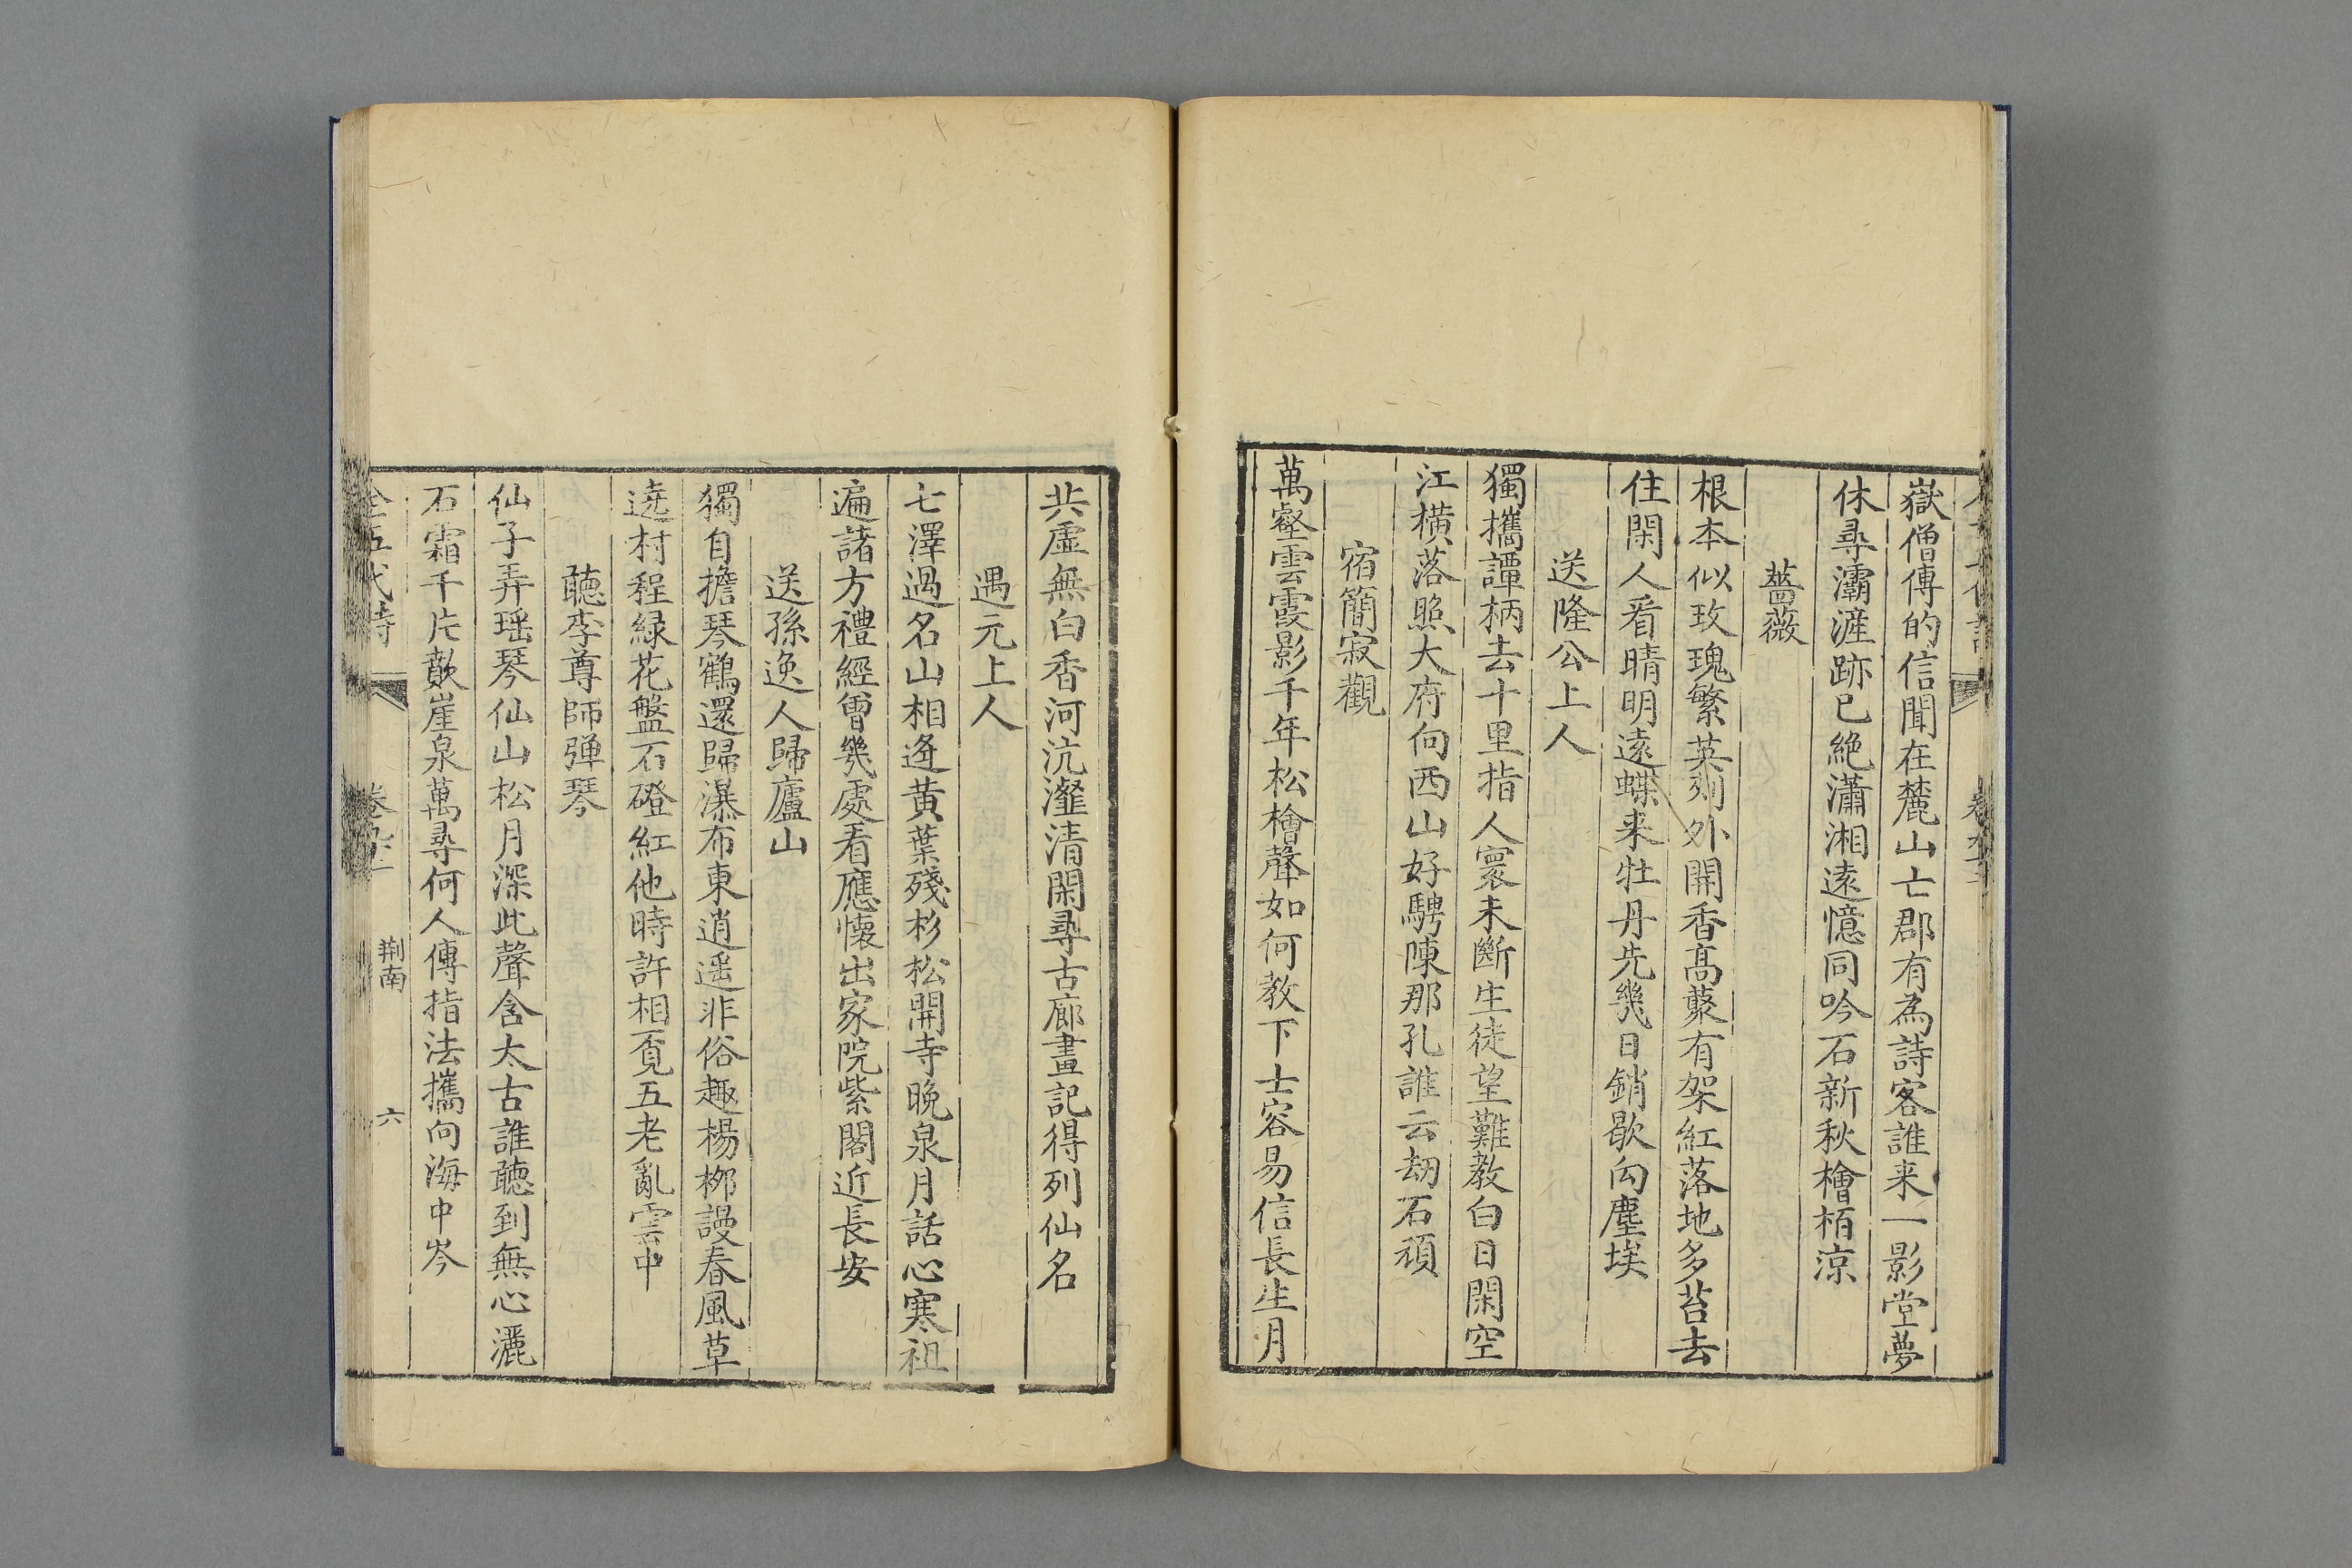 嶽僧傳的信聞在麓山亡郡有為詩客誰来一影堂夢
休尋灞滻跡已絶瀟湘遠憶同吟石新秋檜栢涼
薔薇
根本似玫瑰繁英刺外開香髙藂有架紅落地多苔去
住閑人看晴明遠蝶来牡丹先幾日銷歇向塵埃
送隆公上人
獨攜譚柄去千里指人寰未斷生徒望難教白日閑空
江横落照大府向西山好騁陳那孔誰云劫石頑
宿簡寂觀
萬壑雲霞影千年松檜聲如何教下士容易信長生月
共虚無白香河沆瀣清閑尋古廊畫記得列仙名
遇元上人
七澤過名山相逢黄葉殘杉松開寺晚泉月話心寒祖
遍諸方禮經曽幾處看應懐出家院紫閣近長安
送孫逸人歸廬山
獨自擔琴鶴還歸瀑布東逍遥非俗趣楊桞謾春風草
遶村程緑花盤石磴紅他時許相覔五老亂雲中
聽李尊師弹琴
仙子弄瑶琴仙山松月深此聲含太古誰聽到無心灑
石霜千片歕崖泉萬尋何人傳指法攜向海中岑
全五代詩
荆南
六